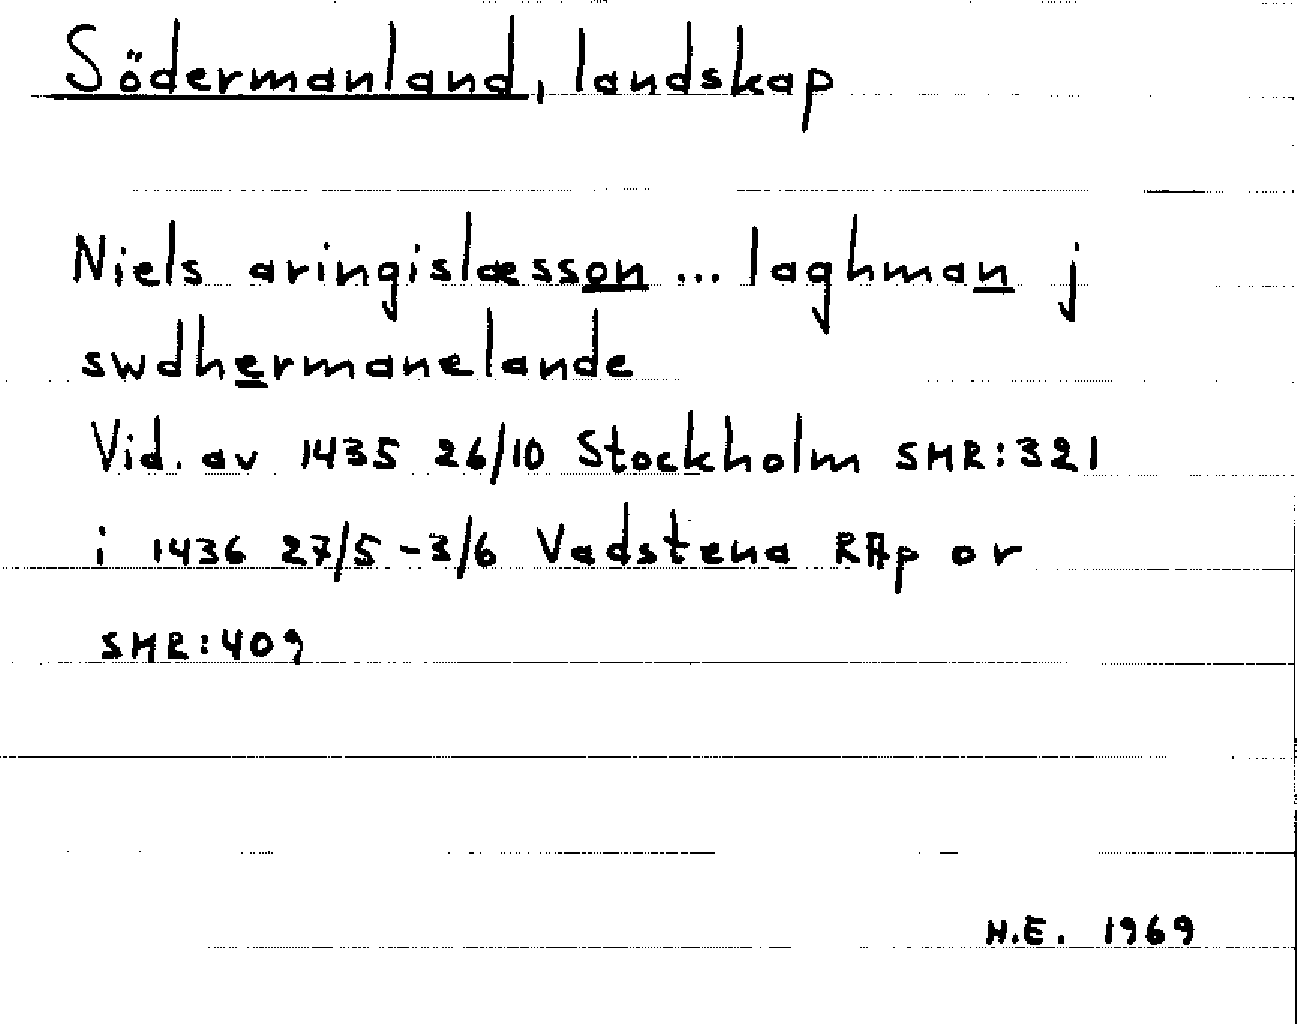 Södermanland, landskap
Niels aringislæsson ... laghman j
swdhermanelande
Vid. av 1435 26/10 Stockholm SMR:321
i 1436 27/5 - 3/6 Vadstena RAp or
SMR:409
H.E. 1969